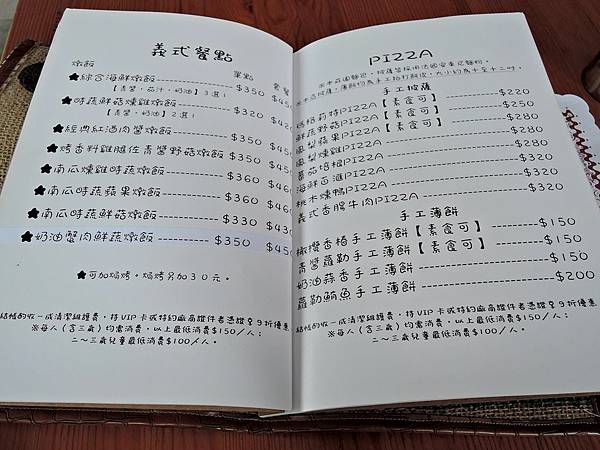 義式餐點
燉飯 單點 套餐
★綜合海鮮燉飯 $350 $450
【青醬、茄汁、奶油】3選1
★時蔬鮮菇燻雞燉飯 $350 $450
【青醬、奶油】2選1
★經典紅酒肉醬燉飯 $350 $450
★烤香料雞腿佐青醬野菇燉飯 $360 $46
★南瓜燻雞時蔬燉飯 $360 $460
★南瓜時蔬蘋果燉飯 $360 $460
★南瓜時蔬鮮菇燉飯 $330 $430
★奶油蟹肉鮮蔬燉飯 $350 $450
★可加焗烤。焗烤另加30元。
結帳酌收一成清潔維護費,持VIP卡或特約廠商證件者憑證享9折優惠
※每人(含三歲)均需消費,以上最低消費$150/人;
二~三歲兒童最低消費$100/人。
PIZZA
手工披薩
瑪格莉特PIZZA【素食可】 $220
鮮蔬野菇PIZZA【素食可】 $250
鳳梨蘋果PIZZA【素食可】 $280
鳳梨燻雞PIZZA $280
蕃茄培根PIZZA $280
海鮮百匯PIZZA $320
桃木燻鴨PIZZA $320
義式香腸牛肉PIZZA $320
手工薄餅
橄欖香椿手工薄餅【素食可】 $150
青醬蘿勒手工薄餅【素食可】 $150
奶油蒜香手工薄餅 $150
蘿勒鮪魚手工薄餅 $200
結帳酌收一成清潔維護費,持VIP卡或特約廠商證件者憑證享9折優惠
※每人(含三歲)均需消費,以上最低消費$150/人;
二~三歲兒童最低消費$100/人。